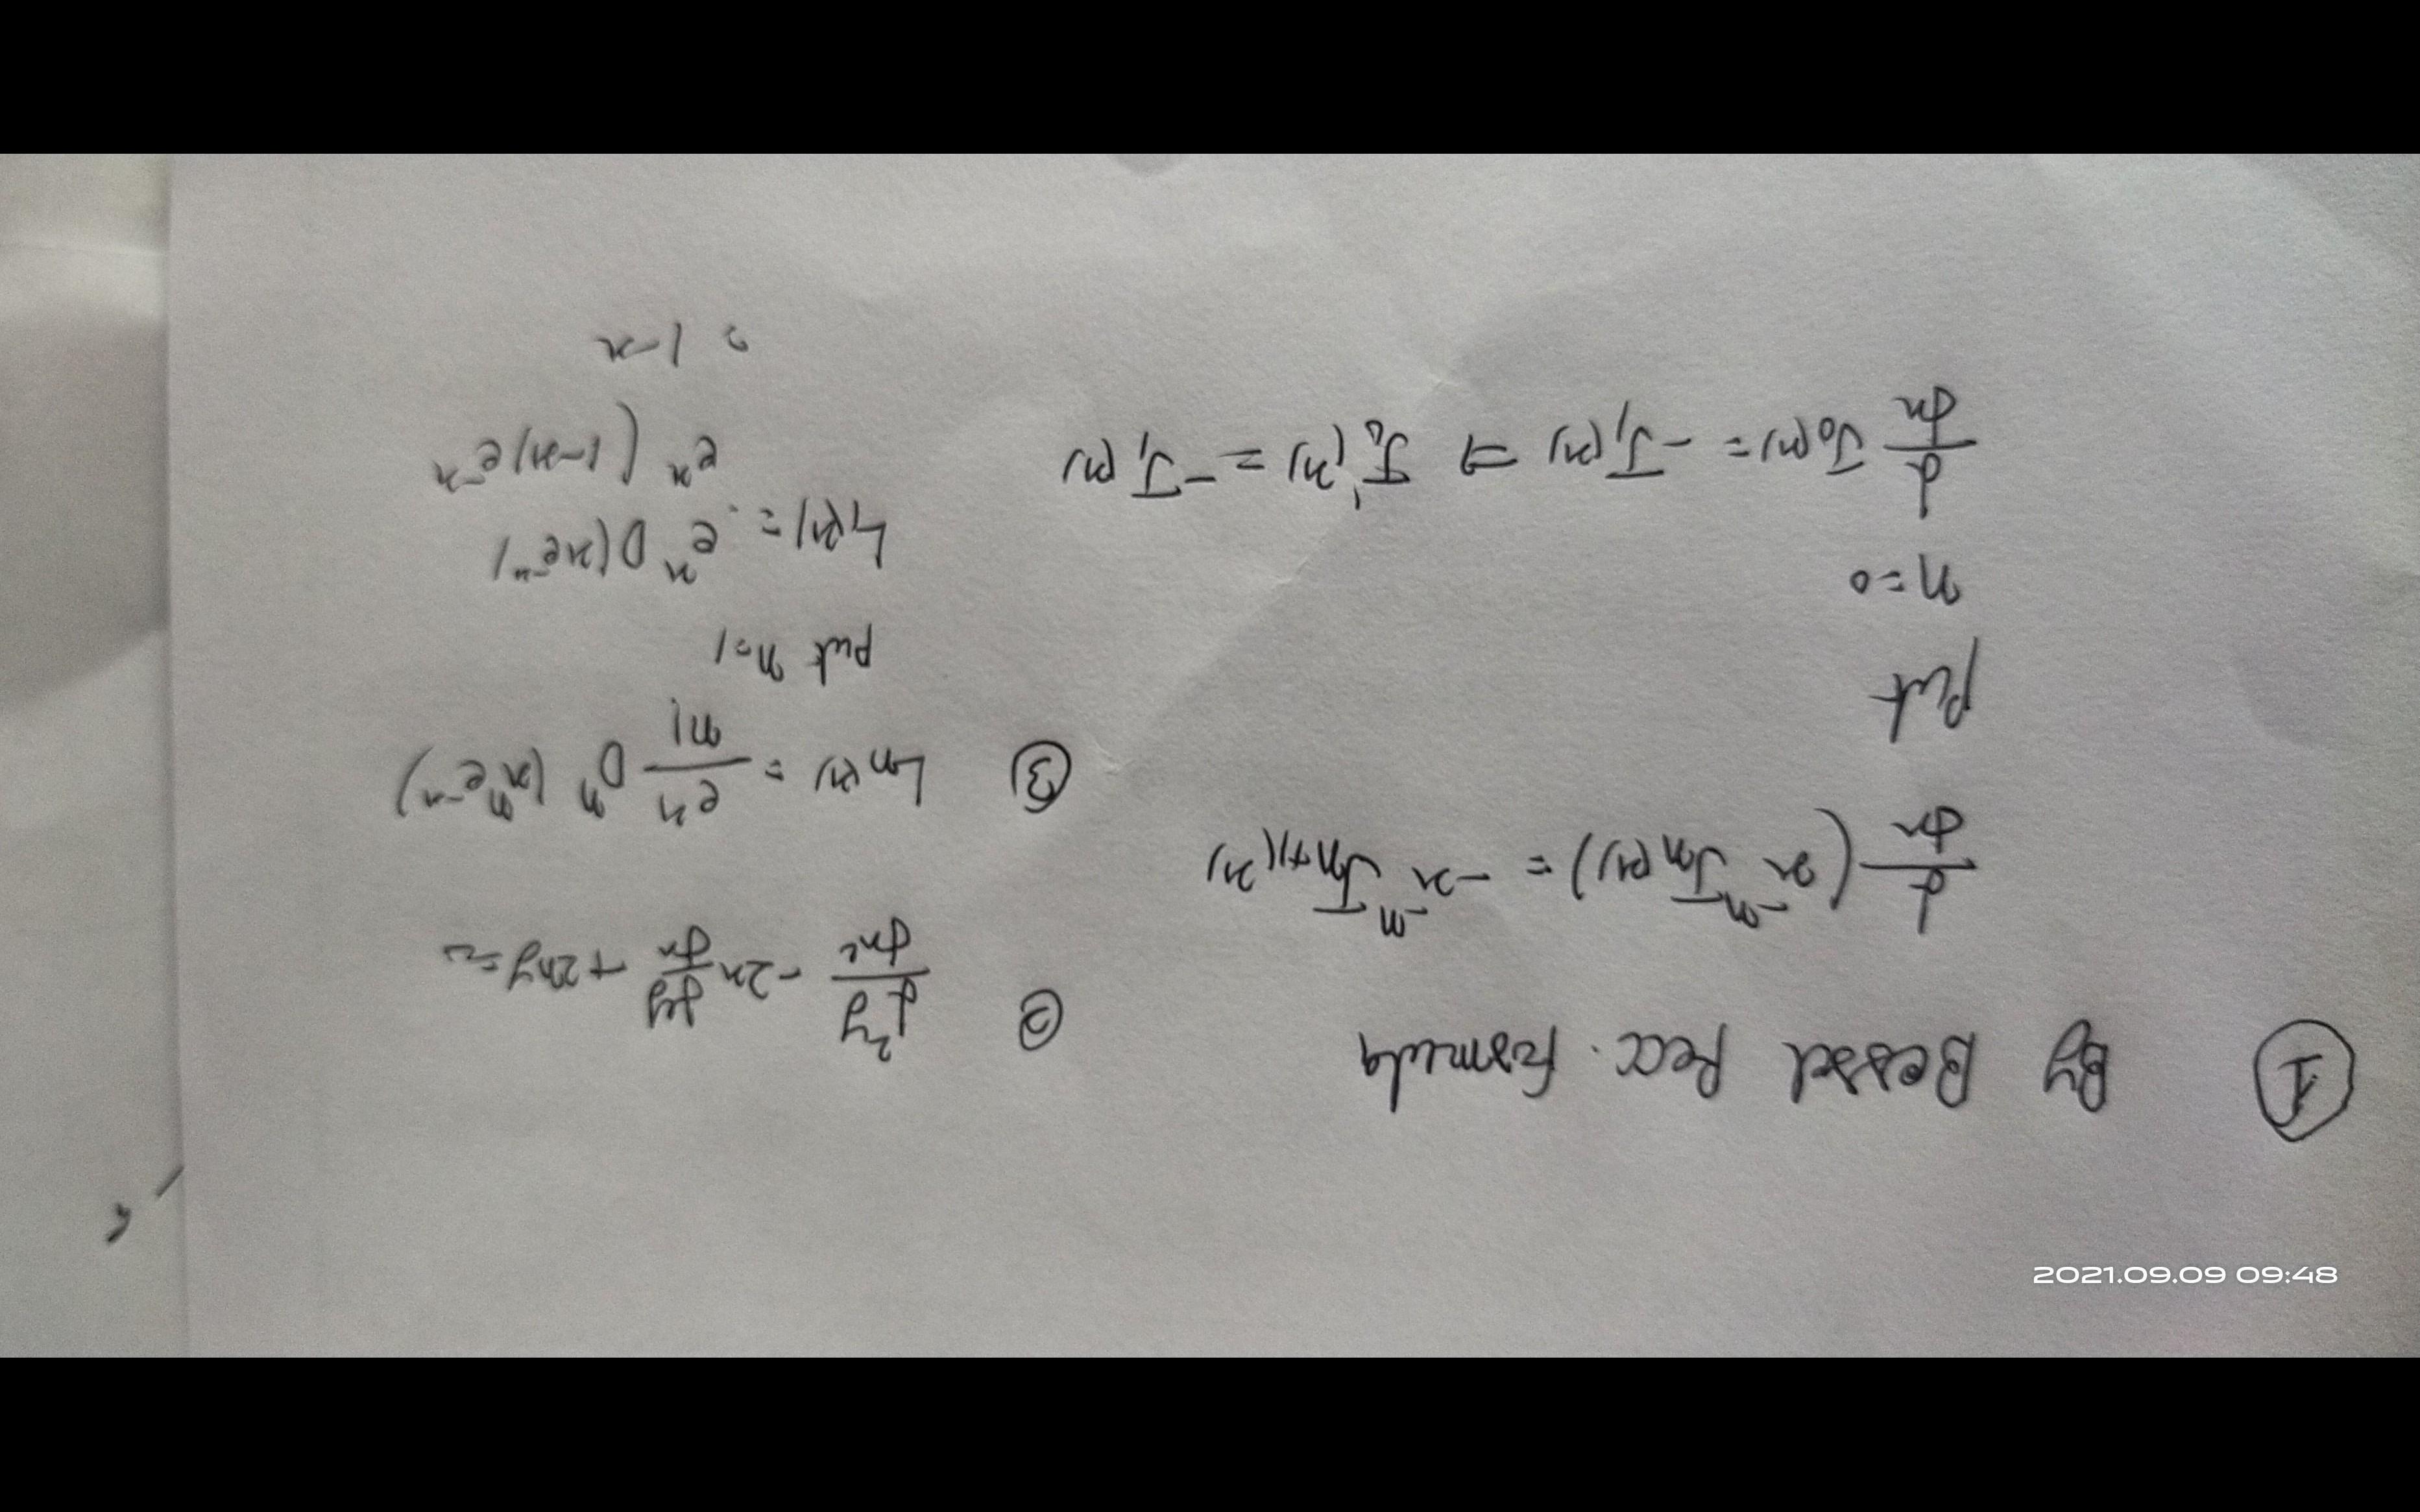 ① By Bessel Recc. formula
d/dx (x⁻ⁿ Jn(x)) = -x⁻ⁿ Jn+1(x)
Put
n=0
d/dx J₀(x) = -J₁(x) ⇒ J₀'(x) = -J₁(x)
② d²y/dx² - 2x dy/dx + 2ny =
③ Ln(x) = eˣ/n! Dⁿ (xⁿ e⁻ˣ)
put n=1
L₁(x) = eˣ D(x e⁻ˣ)
eˣ (1-x) e⁻ˣ
= 1-x
2021.09.09 09:48